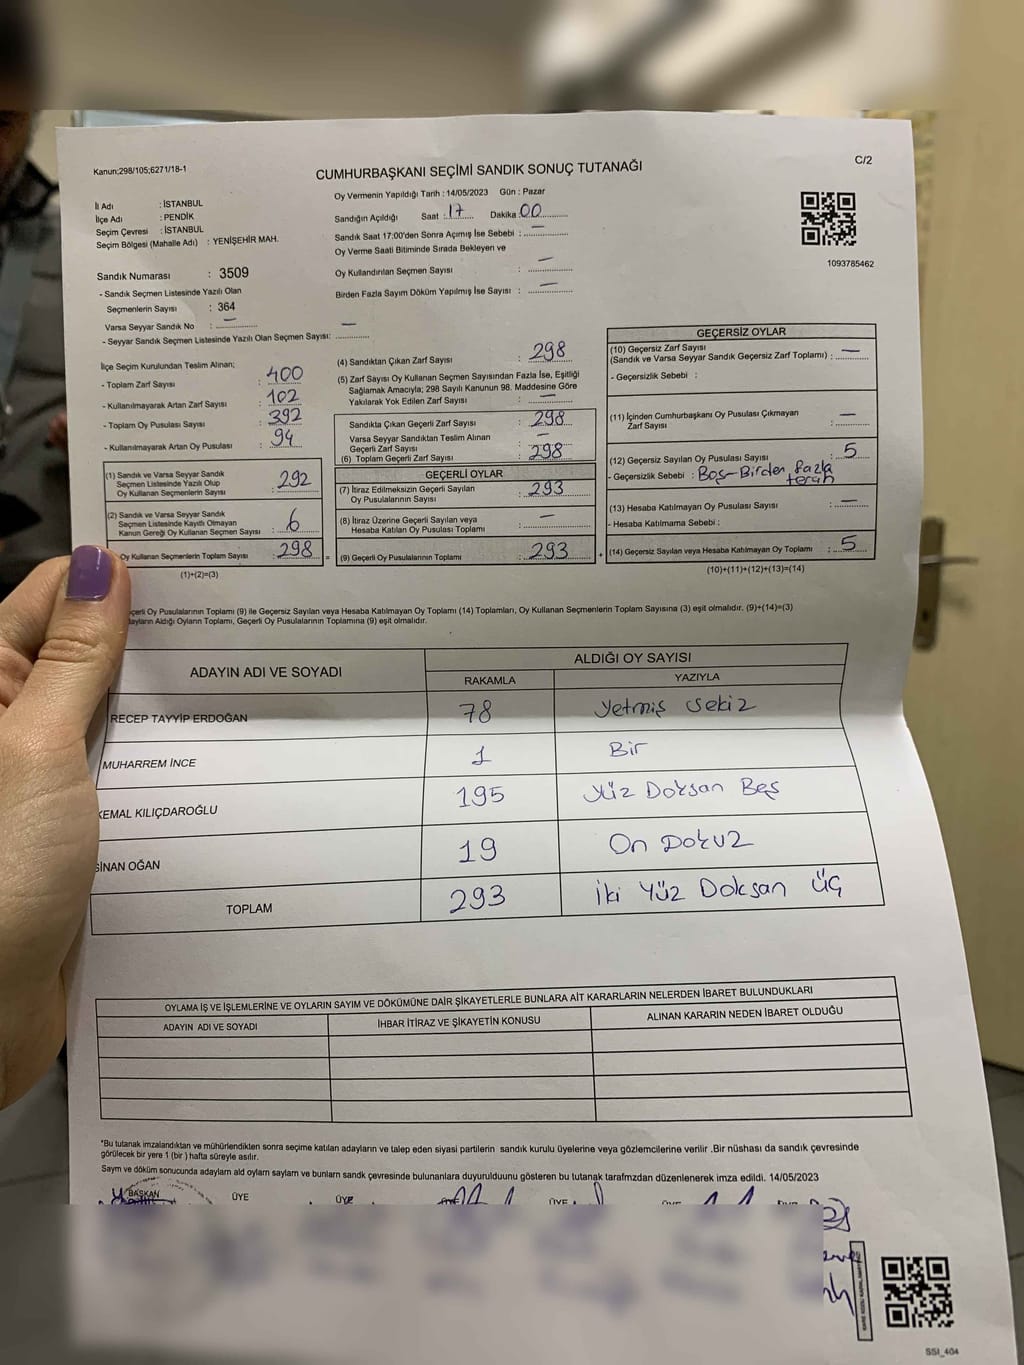 Kanun;298/105;6271/18-1
CUMHURBAŞKANI SEÇİMİ SANDIK SONUÇ TUTANAĞI
C/2
İl Adı : İSTANBUL
İlçe Adı : PENDİK
Seçim Çevresi : İSTANBUL
Seçim Bölgesi (Mahalle Adı) : YENİŞEHİR MAH.
Sandık Numarası : 3509
- Sandık Seçmen Listesinde Yazılı Olan
Seçmenlerin Sayısı : 364
Varsa Seyyar Sandık No : —
- Seyyar Sandık Seçmen Listesinde Yazılı Olan Seçmen Sayısı: —
Oy Vermenin Yapıldığı Tarih : 14/05/2023 Gün : Pazar
Sandığın Açıldığı Saat : 17 Dakika : 00
Sandık Saat 17:00'den Sonra Açımış İse Sebebi : —
Oy Verme Saati Bitiminde Sırada Bekleyen ve
Oy Kullandırılan Seçmen Sayısı : —
Birden Fazla Sayım Döküm Yapılmış İse Sayısı : —
1093785462
İlçe Seçim Kurulundan Teslim Alınan;
- Toplam Zarf Sayısı : 400
- Kullanılmayarak Artan Zarf Sayısı : 102
- Toplam Oy Pusulası Sayısı : 392
- Kullanılmayarak Artan Oy Pusulası : 94
(1) Sandık ve Varsa Seyyar Sandık
Seçmen Listesinde Yazılı Olup
Oy Kullanan Seçmenlerin Sayısı : 292
(2) Sandık ve Varsa Seyyar Sandık
Seçmen Listesinde Kayıtlı Olmayan
Kanun Gereği Oy Kullanan Seçmen Sayısı : 6
Oy Kullanan Seçmenlerin Toplam Sayısı : 298 =
(1)+(2)=(3)
(4) Sandıktan Çıkan Zarf Sayısı : 298
(5) Zarf Sayısı Oy Kullanan Seçmen Sayısından Fazla İse, Eşitliği
Sağlamak Amacıyla; 298 Sayılı Kanunun 98. Maddesine Göre
Yakılarak Yok Edilen Zarf Sayısı : —
Sandıkta Çıkan Geçerli Zarf Sayısı : 298
Varsa Seyyar Sandıktan Teslim Alınan
Geçerli Zarf Sayısı : —
(6) Toplam Geçerli Zarf Sayısı : 298
GEÇERLİ OYLAR
(7) İtiraz Edilmeksizin Geçerli Sayılan
Oy Pusulalarının Sayısı : 293
(8) İtiraz Üzerine Geçerli Sayılan veya
Hesaba Katılan Oy Pusulası Toplamı : —
(9) Geçerli Oy Pusulalarının Toplamı : 293 +
GEÇERSİZ OYLAR
(10) Geçersiz Zarf Sayısı
(Sandık ve Varsa Seyyar Sandık Geçersiz Zarf Toplamı) : —
- Geçersizlik Sebebi :
(11) İçinden Cumhurbaşkanı Oy Pusulası Çıkmayan
Zarf Sayısı : —
(12) Geçersiz Sayılan Oy Pusulası Sayısı : 5
- Geçersizlik Sebebi : Boş-Birden fazla
tercih
(13) Hesaba Katılmayan Oy Pusulası Sayısı : —
- Hesaba Katılmama Sebebi :
(14) Geçersiz Sayılan veya Hesaba Katılmayan Oy Toplamı : 5
(10)+(11)+(12)+(13)=(14)
Oy Pusulalarının Toplamı (9) ile Geçersiz Sayılan veya Hesaba Katılmayan Oy Toplamı (14) Toplamları, Oy Kullanan Seçmenlerin Toplam Sayısına (3) eşit olmalıdır. (9)+(14)=(3)
Aldığı Oyların Toplamı, Geçerli Oy Pusulalarının Toplamına (9) eşit olmalıdır.
ADAYIN ADI VE SOYADI
ALDIĞI OY SAYISI
RAKAMLA YAZIYLA
RECEP TAYYİP ERDOĞAN 78 Yetmiş sekiz
MUHARREM İNCE 1 Bir
KEMAL KILIÇDAROĞLU 195 Yüz Doksan Beş
SİNAN OĞAN 19 On Dokuz
TOPLAM 293 İki Yüz Doksan üç
OYLAMA İŞ VE İŞLEMLERİNE VE OYLARIN SAYIM VE DÖKÜMÜNE DAİR ŞİKAYETLERLE BUNLARA AİT KARARLARIN NELERDEN İBARET BULUNDUKLARI
ADAYIN ADI VE SOYADI İHBAR İTİRAZ VE ŞİKAYETİN KONUSU ALINAN KARARIN NEDEN İBARET OLDUĞU
*Bu tutanak imzalandıktan ve mühürlendikten sonra seçime katılan adayların ve talep eden siyasi partilerin sandık kurulu üyelerine veya gözlemcilerine verilir .Bir nüshası da sandık çevresinde
görülecek bir yere 1 (bir ) hafta süreyle asılır.
Sayım ve döküm sonucunda adaylarn ald oylarn saylarn ve bunların sandk çevresinde bulunanlara duyurulduunu gösteren bu tutanak tarafmzdan düzenlenerek imza edildi. 14/05/2023
BAŞKAN ÜYE ÜYE ÜYE
SSI_404